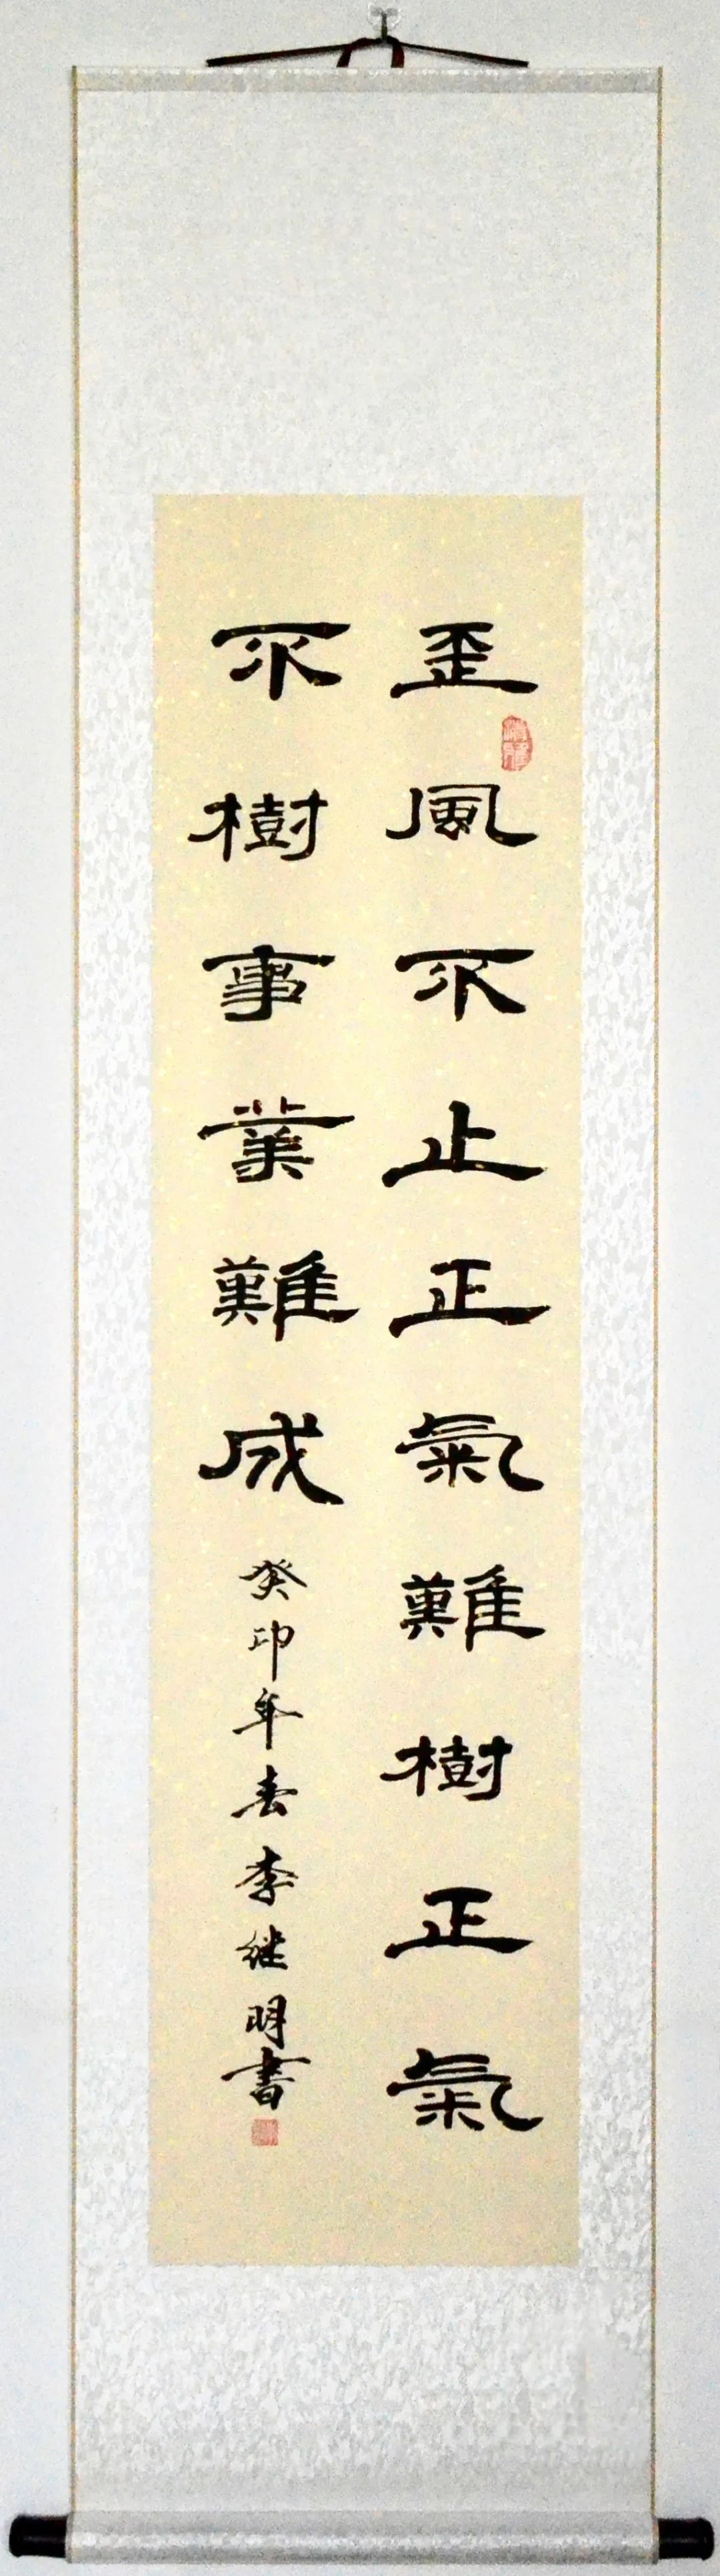 歪風不止正氣難樹正氣
不樹事業難成
癸卯年春李继明書